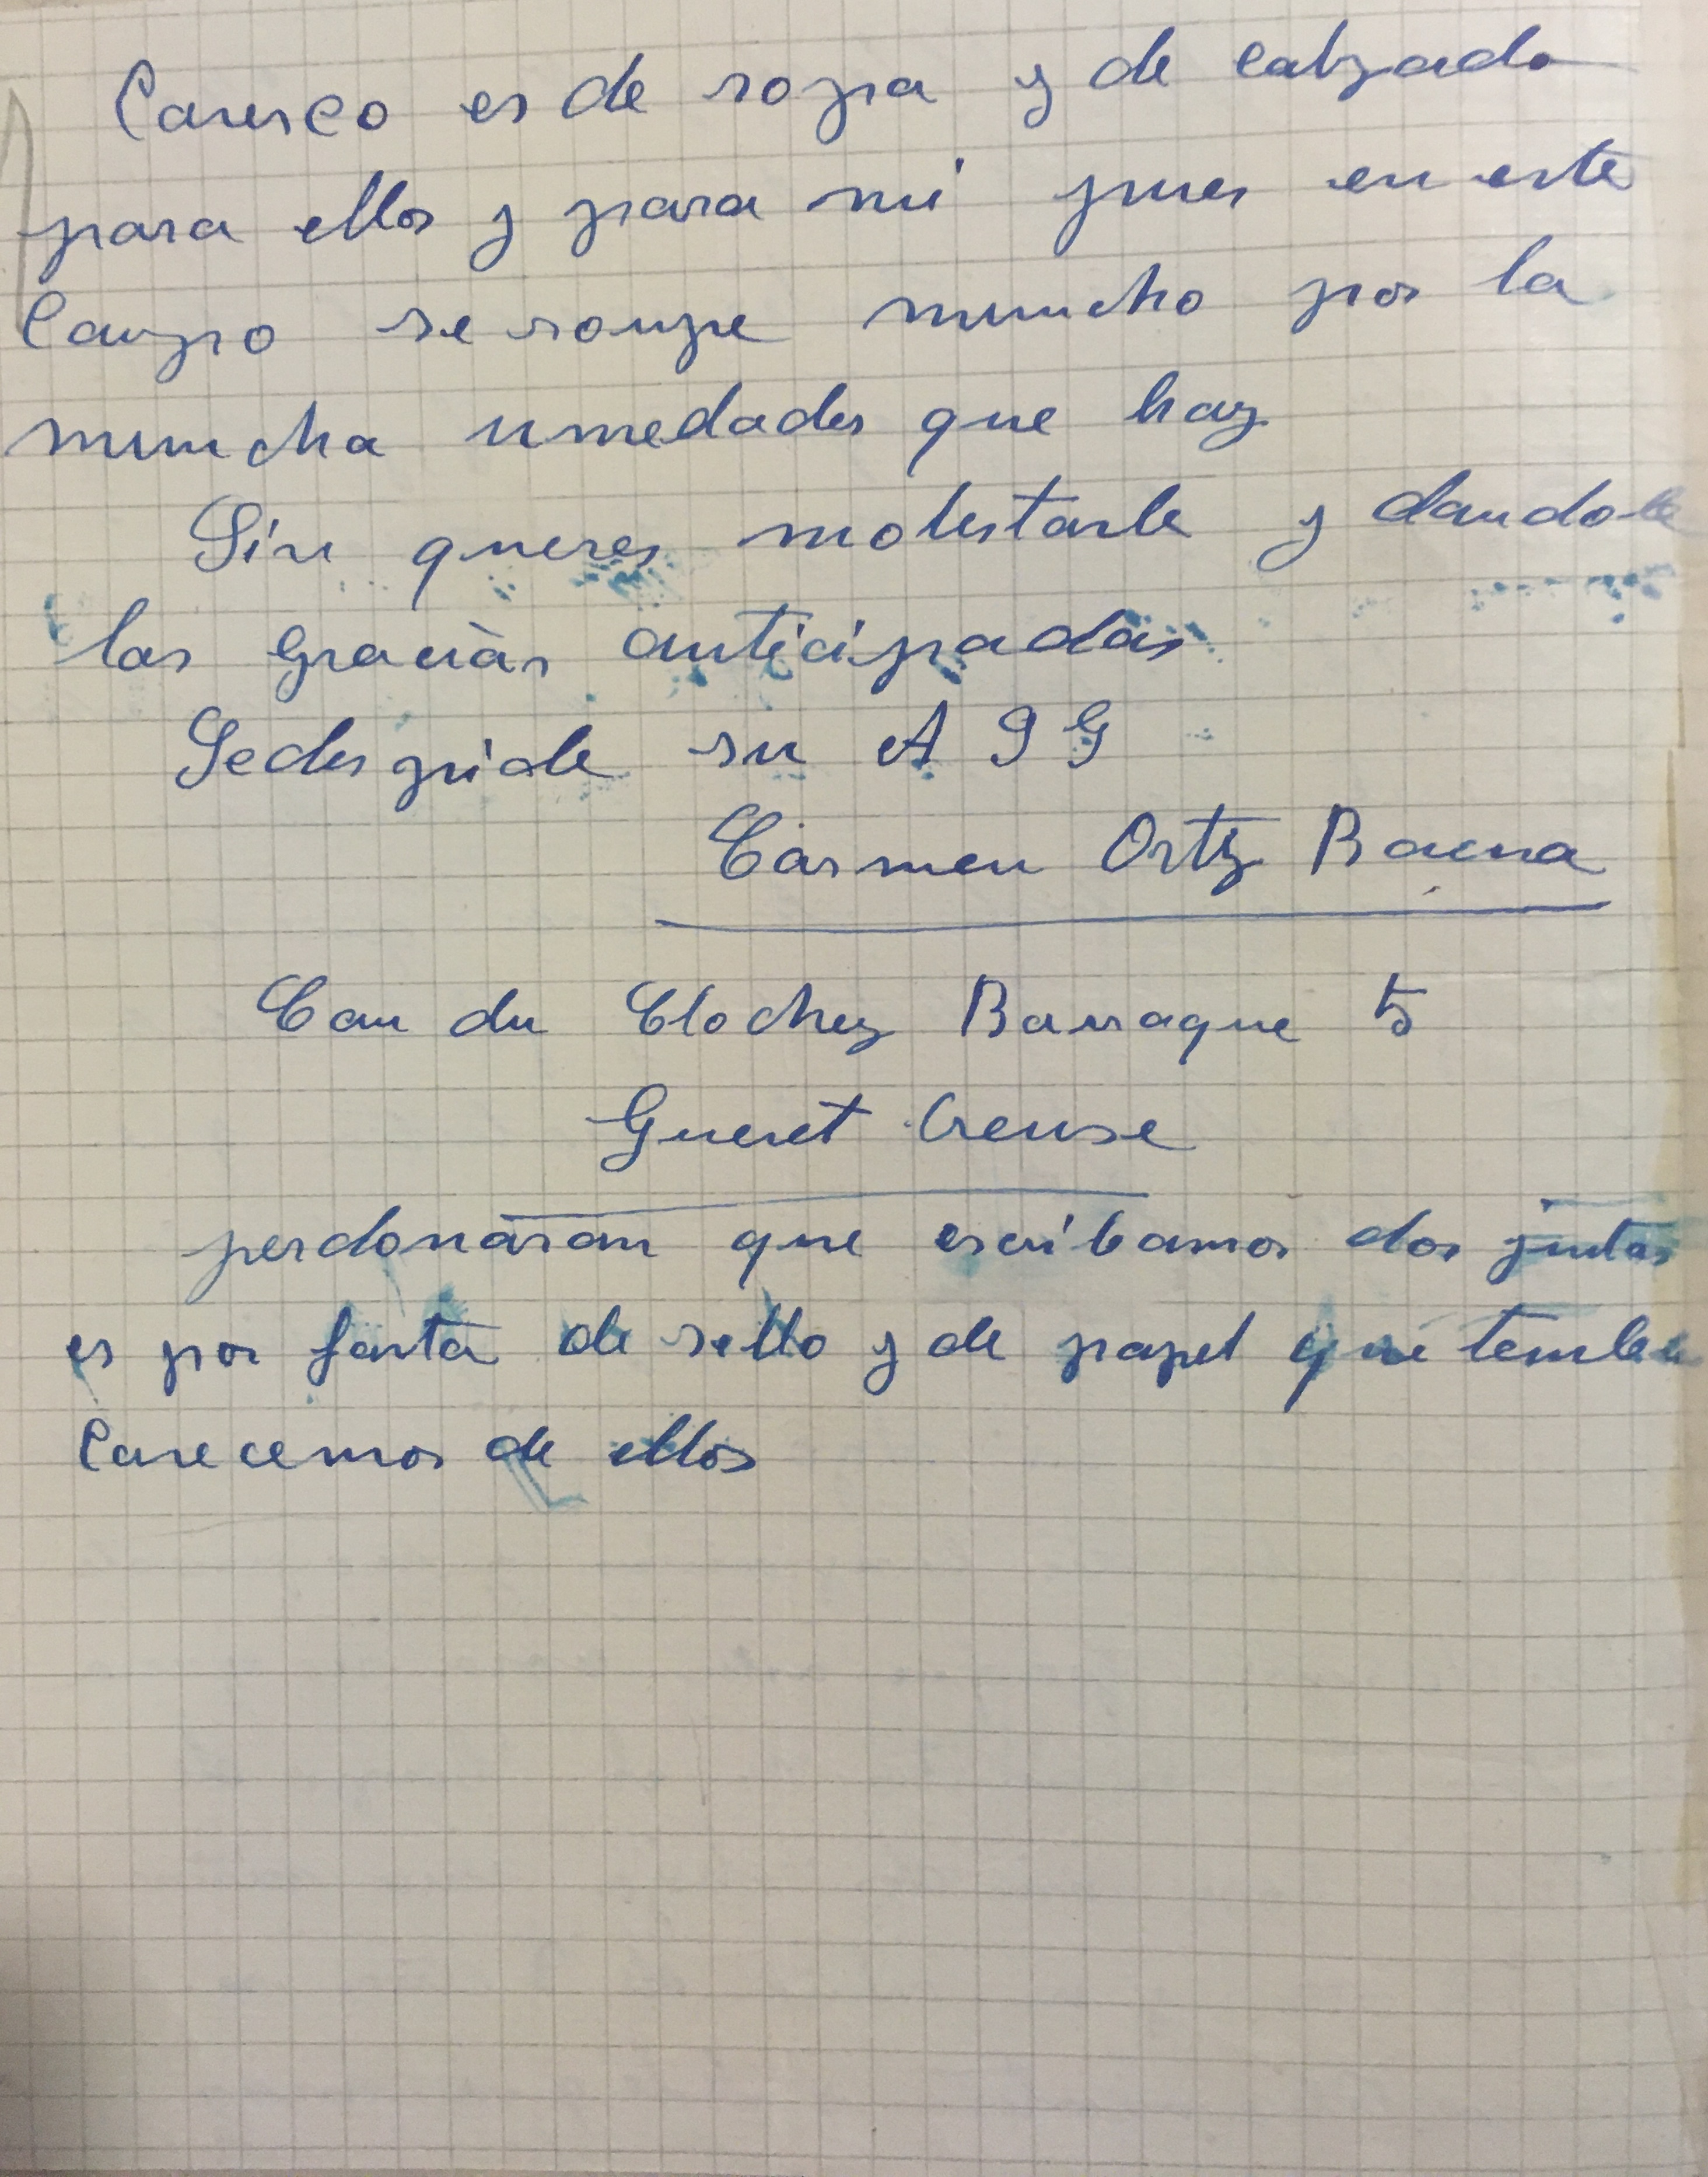 Caresco es de ropa y de calzado
para ellos y para mi pues en este
Campo se rompe muncho por la
muncha umedades que hay
Sin querer molestarle y dandole
las gracias anticipadas
Sedespide su A S G
Carmen Ortiz Baena
Can du Clochez Barraque 5
Gueret Creuse
perdonaran que escribamos dos juntas
es por farta de sello y de papel que
Carecemos de ellos